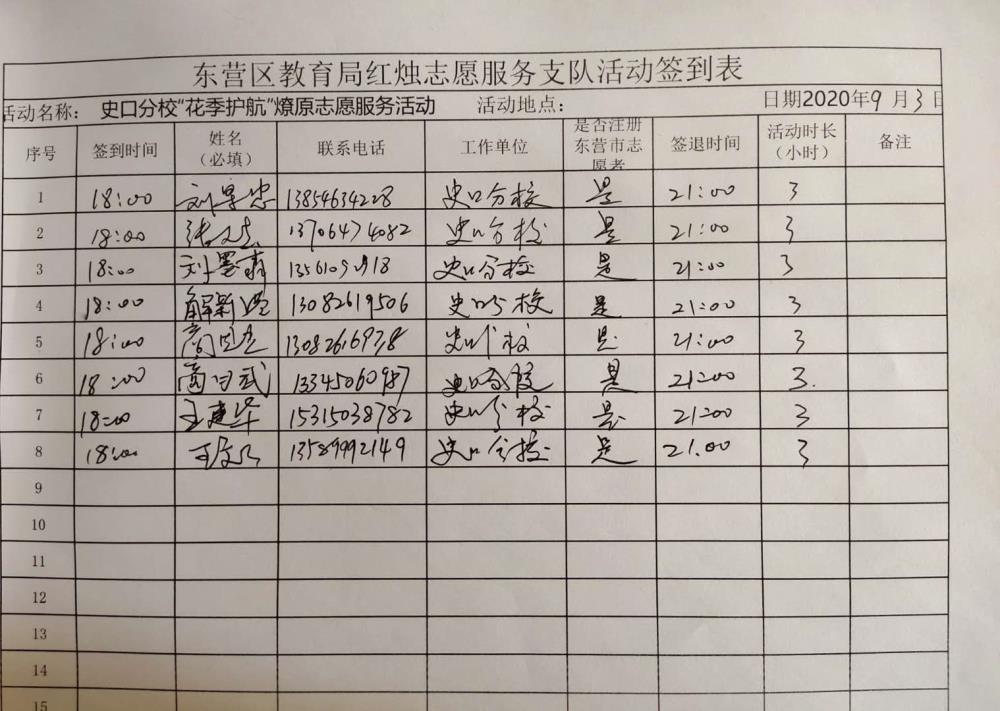 东营区教育局红烛志愿服务支队活动签到表
活动名称： 史口分校“花季护航”燎原志愿服务活动 活动地点： 日期2020年9月3日
序号 签到时间 姓名（必填） 联系电话 工作单位 是否注册东营市志愿者 签退时间 活动时长（小时） 备注
1 18:00 刘景忠 13854634228 史口分校 是 21:00 3
2 18:00 张 13706474082 史口分校 是 21:00 3
3 18:00 刘墨森 史口分校 是 21:00 3
4 18:00 解新 13082619506 史口分校 是 21:00 3
5 18:00 商 13082616938 史口分校 是 21:00 3
6 18:00 商日武 13345060987 史口分校 是 21:00 3.
7 18:00 王建华 15315038782 史口分校 是 21:00 3
8 18:00 王 13589992149 史口分校 是 21:00 3
9
10
11
12
13
14
15